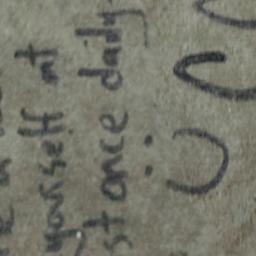 yourself at
st once daily